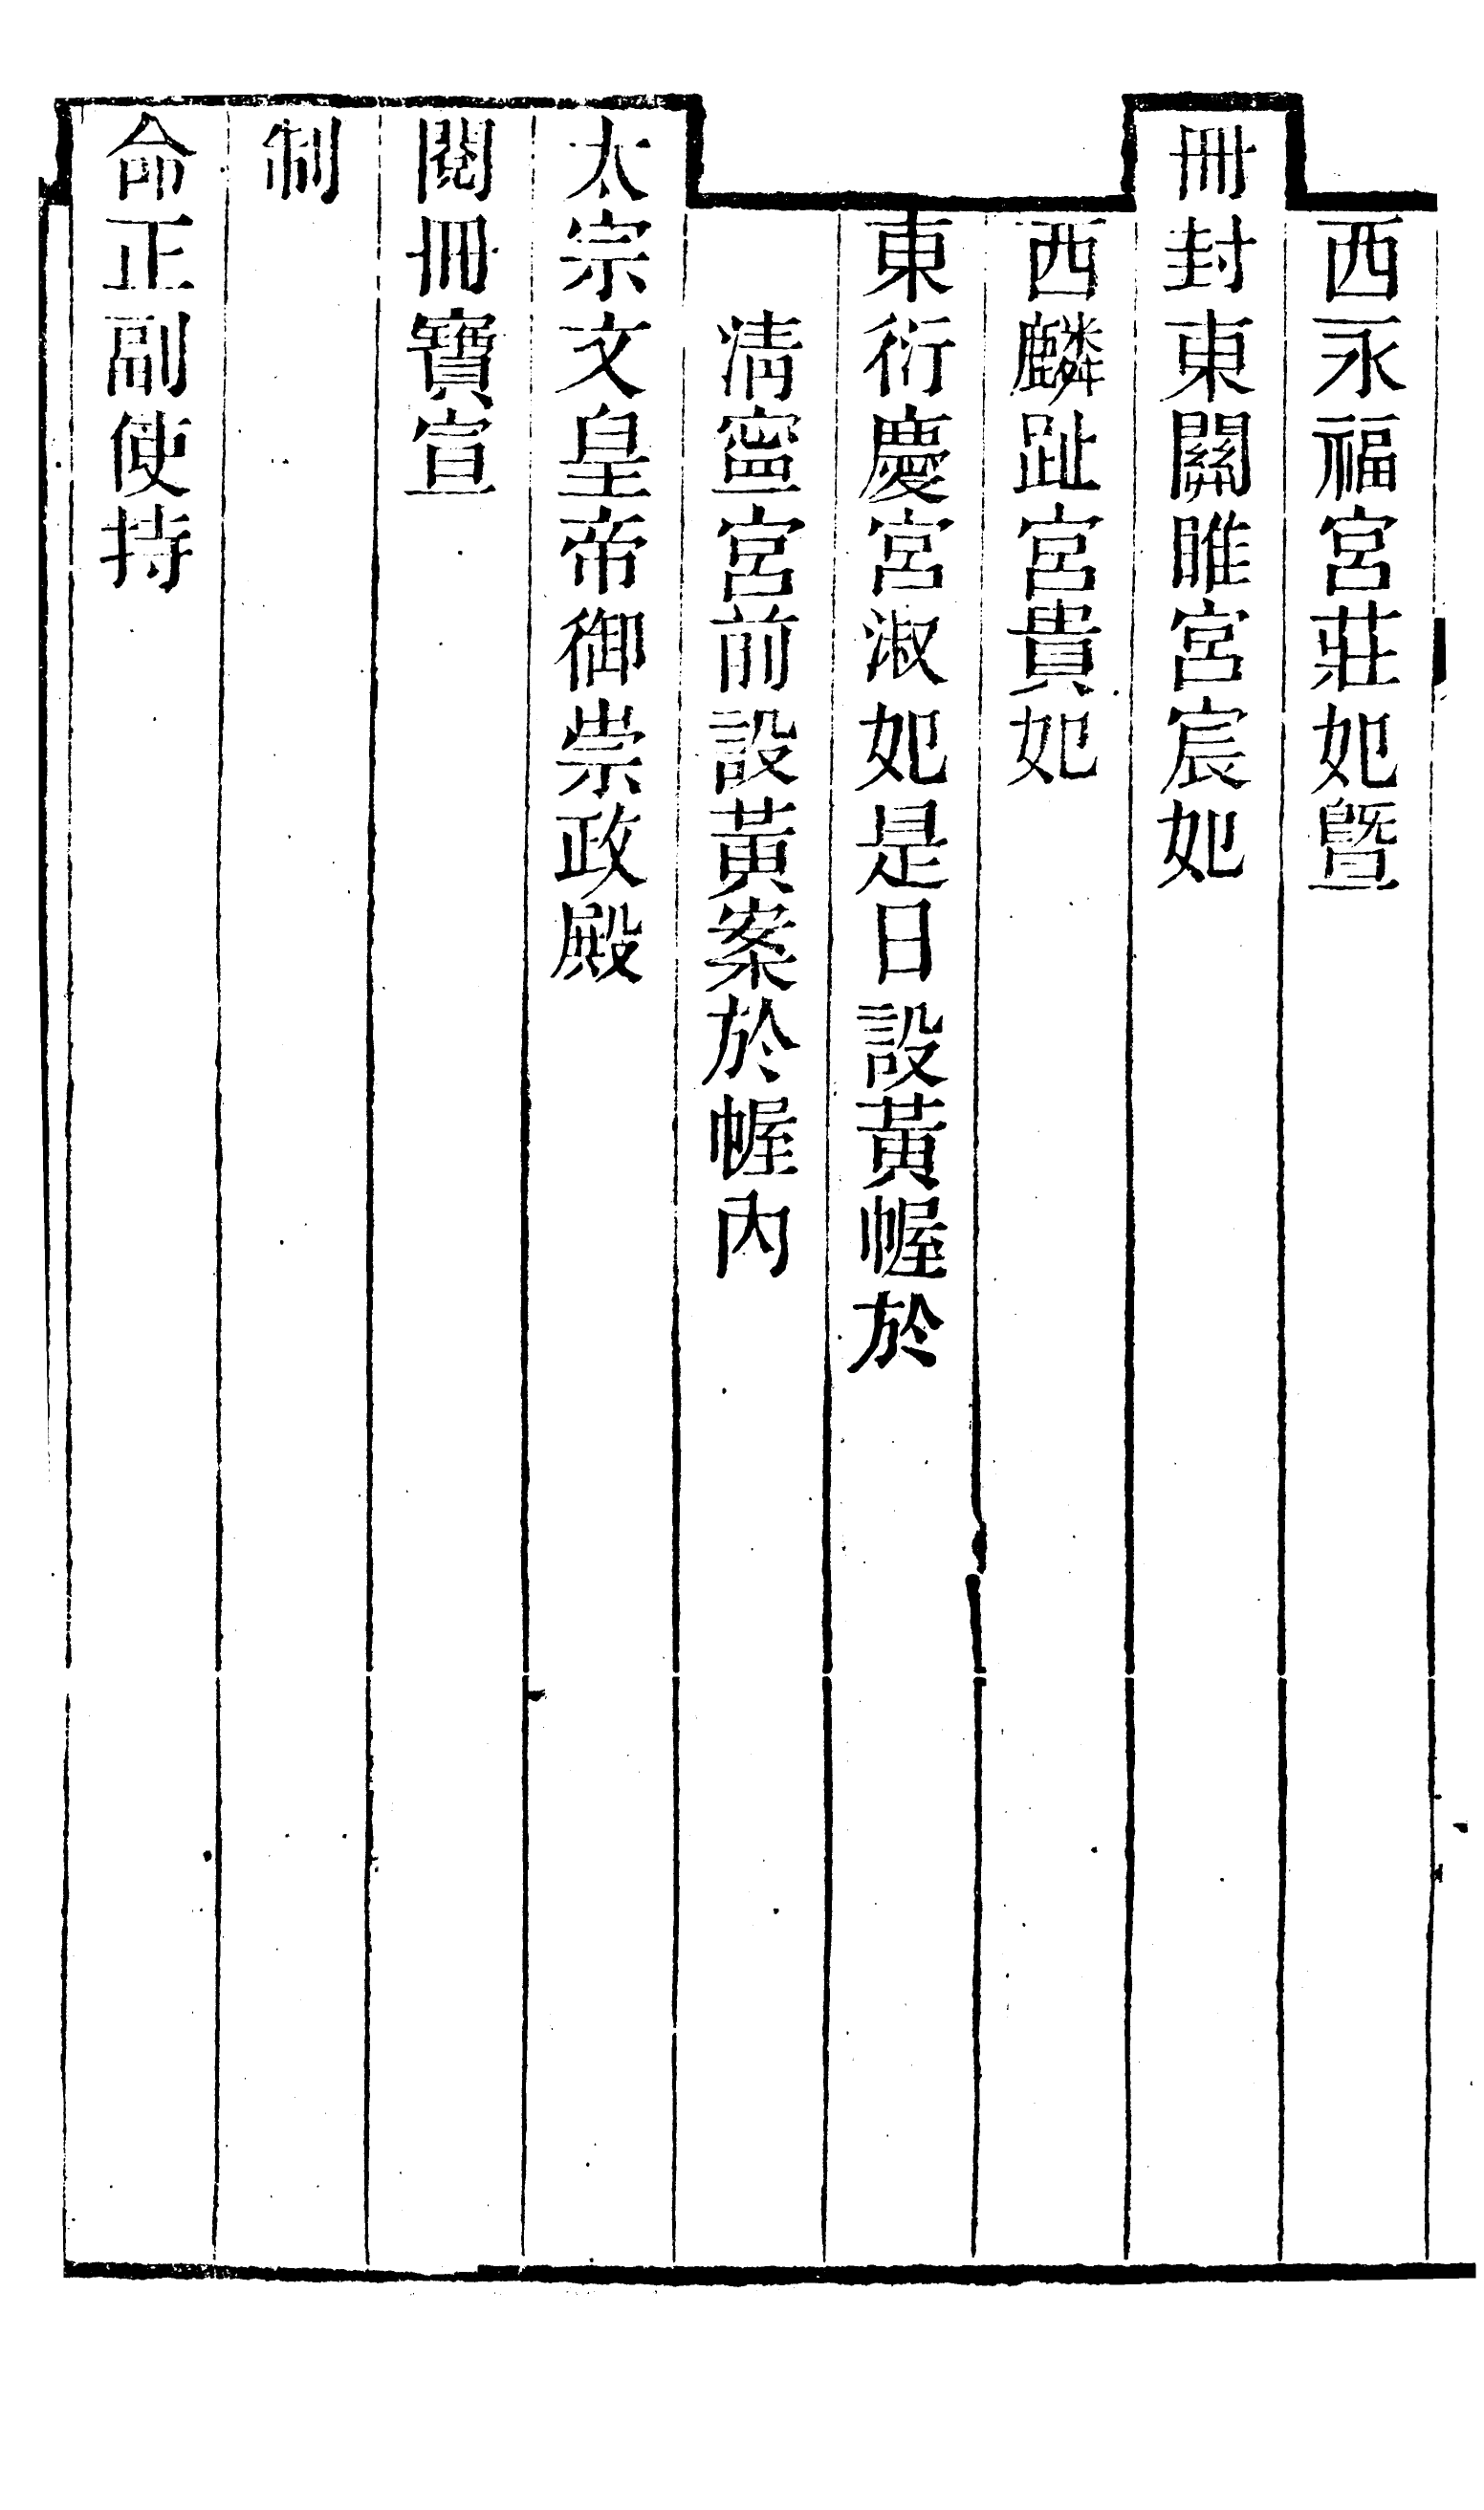 西永福宮莊妃曁
冊封東關睢宮宸妃
西麟趾宮貴妃
東衍慶宮淑妃是日設黃幄於
淸寧宮前設黃案於幄內
太宗文皇帝御崇政殿
閱冊寶宣
制
命正副使持